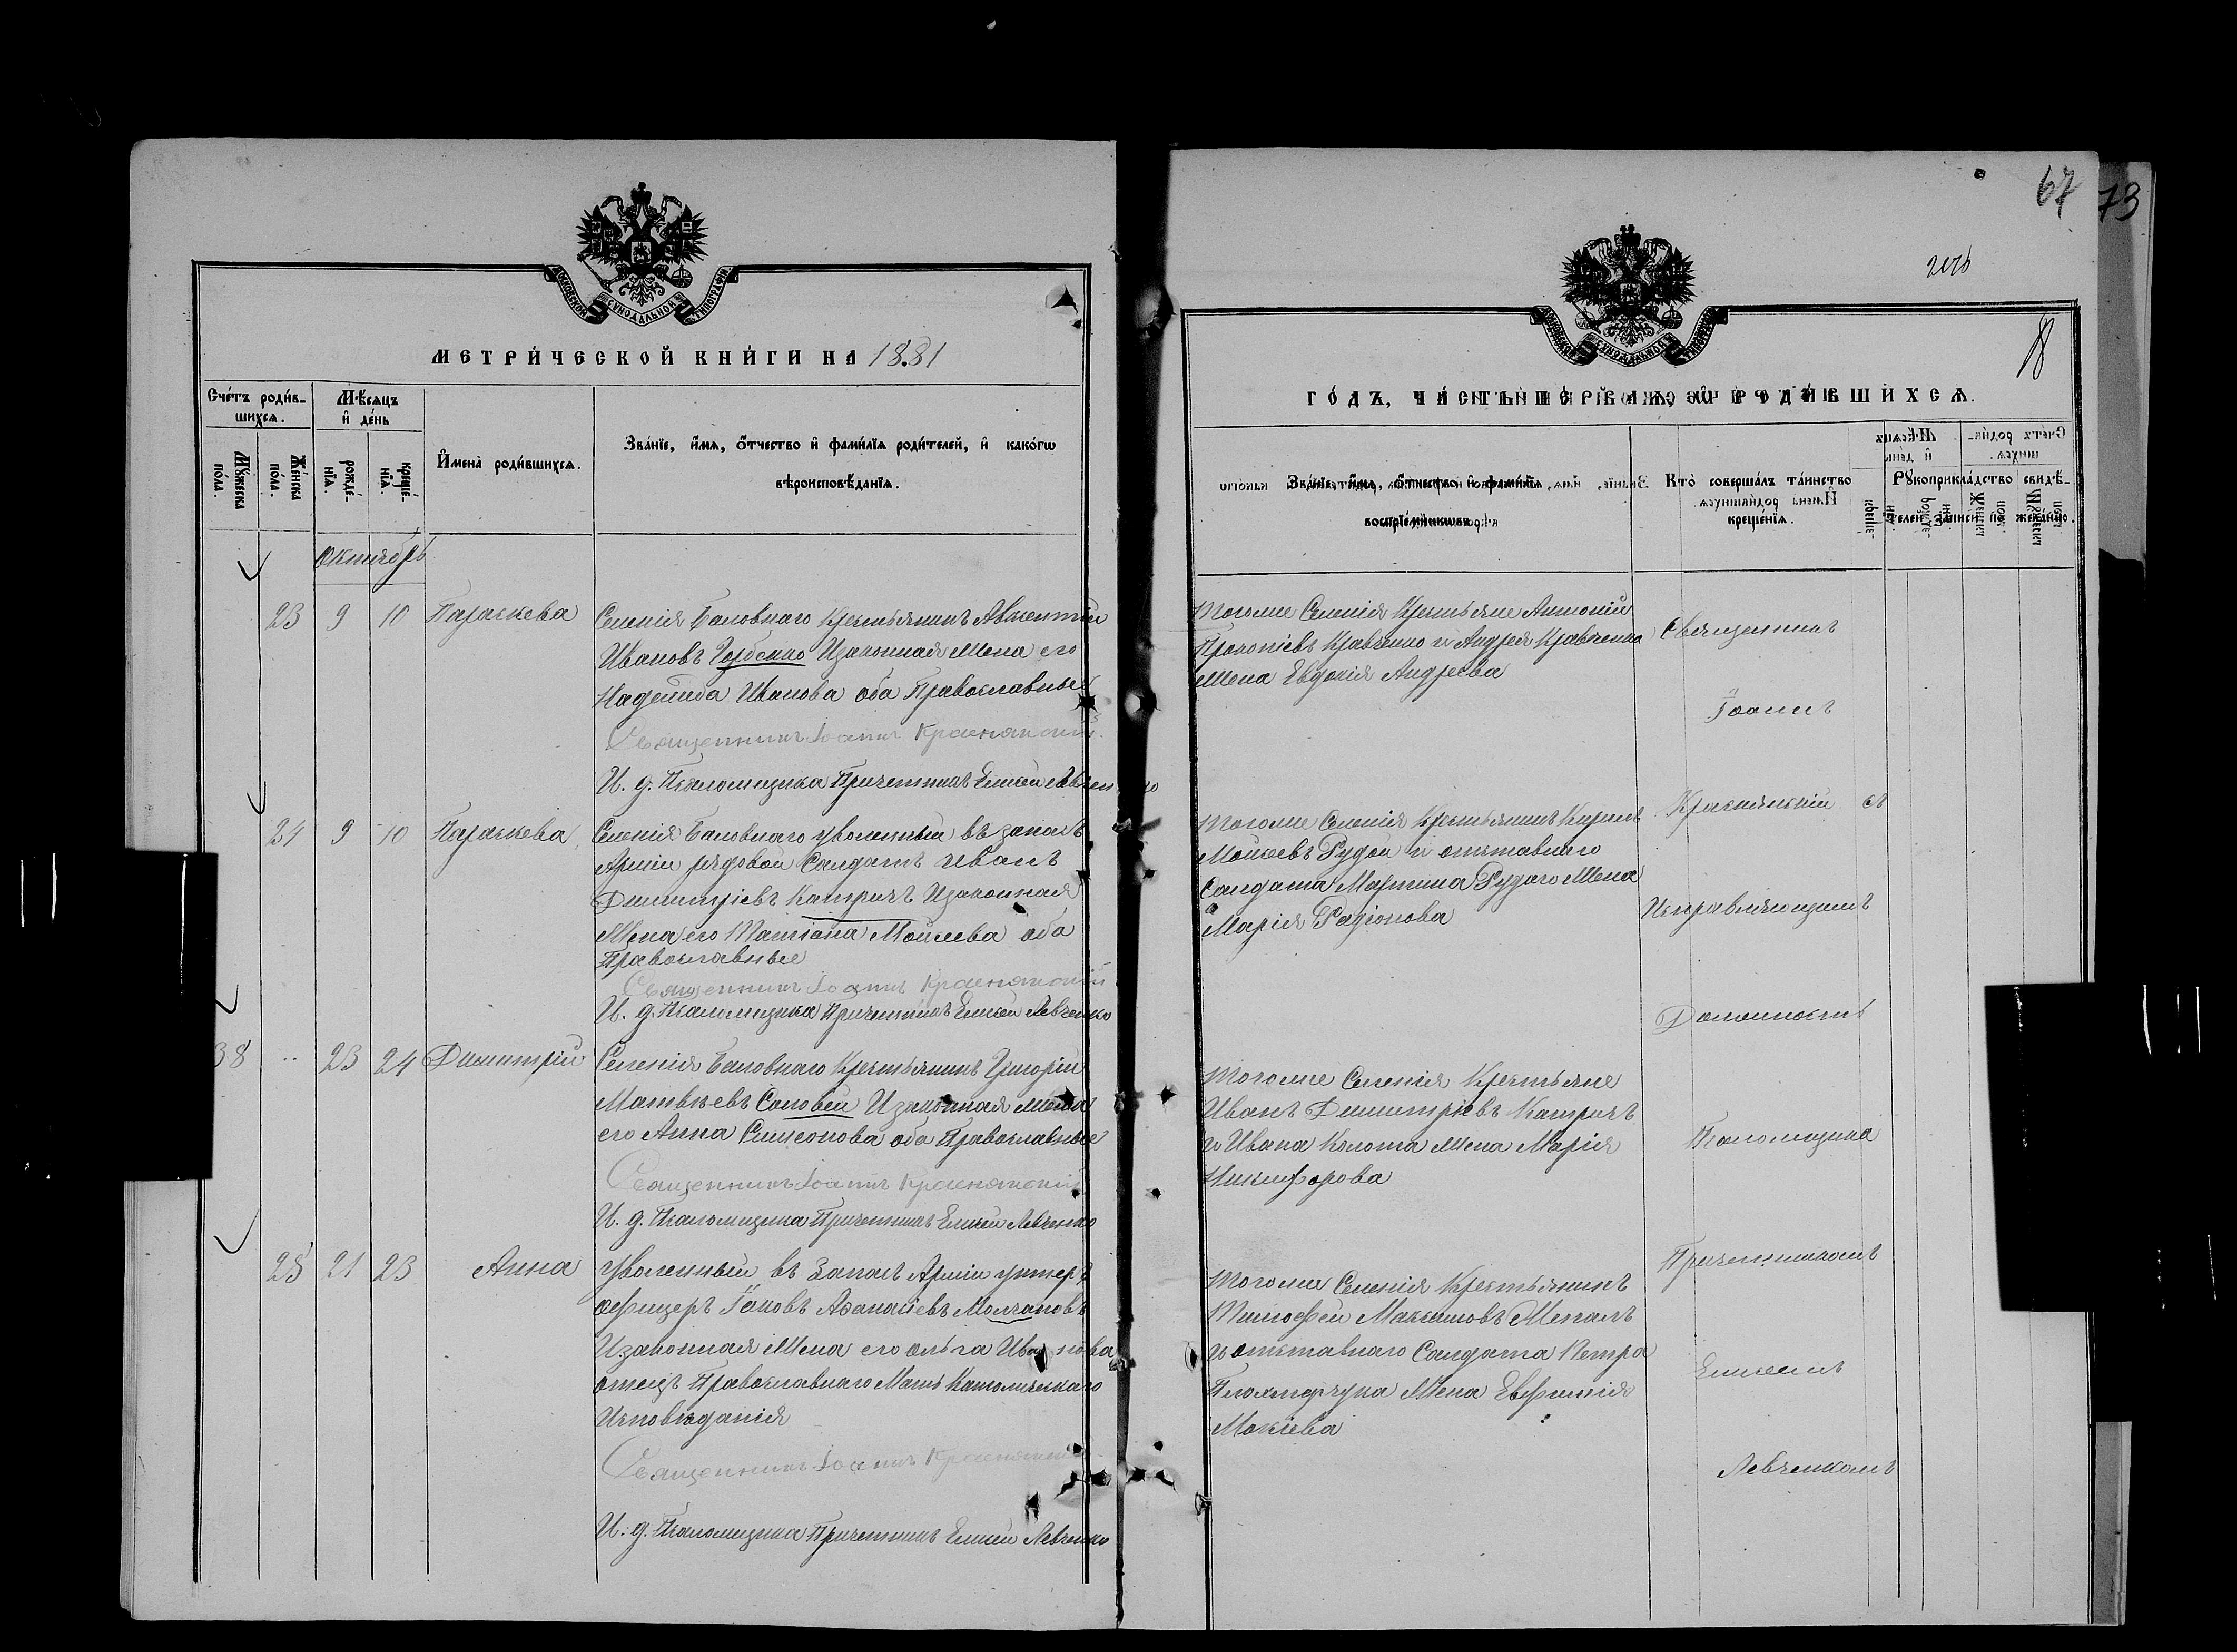 67
73
МОСКОВСКОЙ СѴНОДАЛЬНОЙ ТИПОГРАФІИ
МЕТРИ́ЧЕСКОЙ КНИ́ГИ НА 1881
Сче́тъ роди́в-
шихсѧ.
Мꙋ́жеска
по́ла.
Же́нска
по́ла.
Мѣ́сѧцъ
и҆ де́нь
рожде́-
нїѧ.
креще́-
нїѧ.
И҆мена̀ роди́вшихсѧ.
Зва́нїе, и҆́мѧ, ѻ҆́тчество и҆ фами́лїѧ роди́телей, и҆ како́гѡ
вѣроисповѣ́данїѧ.
Октябрь
23 9 10 Параскева
Селенія Баловнаго Крестьянинъ Авксентій
Ивановъ Горбенко Изаконная Жена его
Надежда Иванова оба Православные
Священникъ Іоаннъ Краснянскій
И. д. Псаломщика Причетникъ Елисей Левченко
24 9 10 Параскева
Селенія Баловнаго уволенный въ запасъ
Арміи рядовой Салдатъ Иванъ
Димитріевъ Катричъ Изаконная
Жена его Татіана Мойсеева оба
Православные
Священникъ Іоаннъ Краснянскій
И. д. Псаломщика Причетникъ Елисей Левченко
38 .. 23 24 Димитрій
Селенія Баловнаго Крестьянинъ Григорій
Матвѣевъ Соловей Изаконная Жена
его Анна Симеонова оба Православные
Священникъ Іоаннъ Краснянскій
И. д. Псаломщика Причетникъ Елисей Левченко
25 21 23 Анна
Уволенный въ Запасъ Арміи унтеръ
офицеръ Іаковъ Афанасіевъ Молчановъ
Изаконная Жена его Ольга Иванова
отецъ Православнаго Мать Католическаго
Исповѣданія
Священникъ Іоаннъ Краснянскій
И. д. Псаломщика Причетникъ Елисей Левченко
ГО́ДЪ, ЧА́СТЬ ПЕ́РВАѦ, Ѡ҆ РОДИ́ВШИХСѦ.
Зва́нїе, и҆́мѧ, ѻ҆́тчество и҆ фами́лїѧ
воспрїе́мникѡвъ.
Кто̀ соверша́лъ та́инство
креще́нїѧ.
Рꙋкоприкла́дство свидѣ́-
телей за́писи по жела́нїю.
Тогоже Селенія Крестьяне Антоній
Прокопіевъ Кравченко и Андрея Кравченка
Жена Евдокія Андреева
Тогоже Селенія Крестьянинъ Кирилъ
Мойсеевъ Рудой и отставнаго
Салдата Мартина Рудаго Жена
Марія Радіонова
Тогоже Селенія Крестьяне
Иванъ Димитріевъ Катричъ
и Ивана Колота Жена Марія
Никифорова
Тогоже Селенія Крестьянинъ
Тимофей Максимовъ
и отставнаго Салдата Петра
Жена Евфимія
Мокіева
Священникъ
Іоаннъ
Краснянскій съ
Исправляющимъ
Должность
Псаломщика
Причетникомъ
Елисеемъ
Левченкомъ